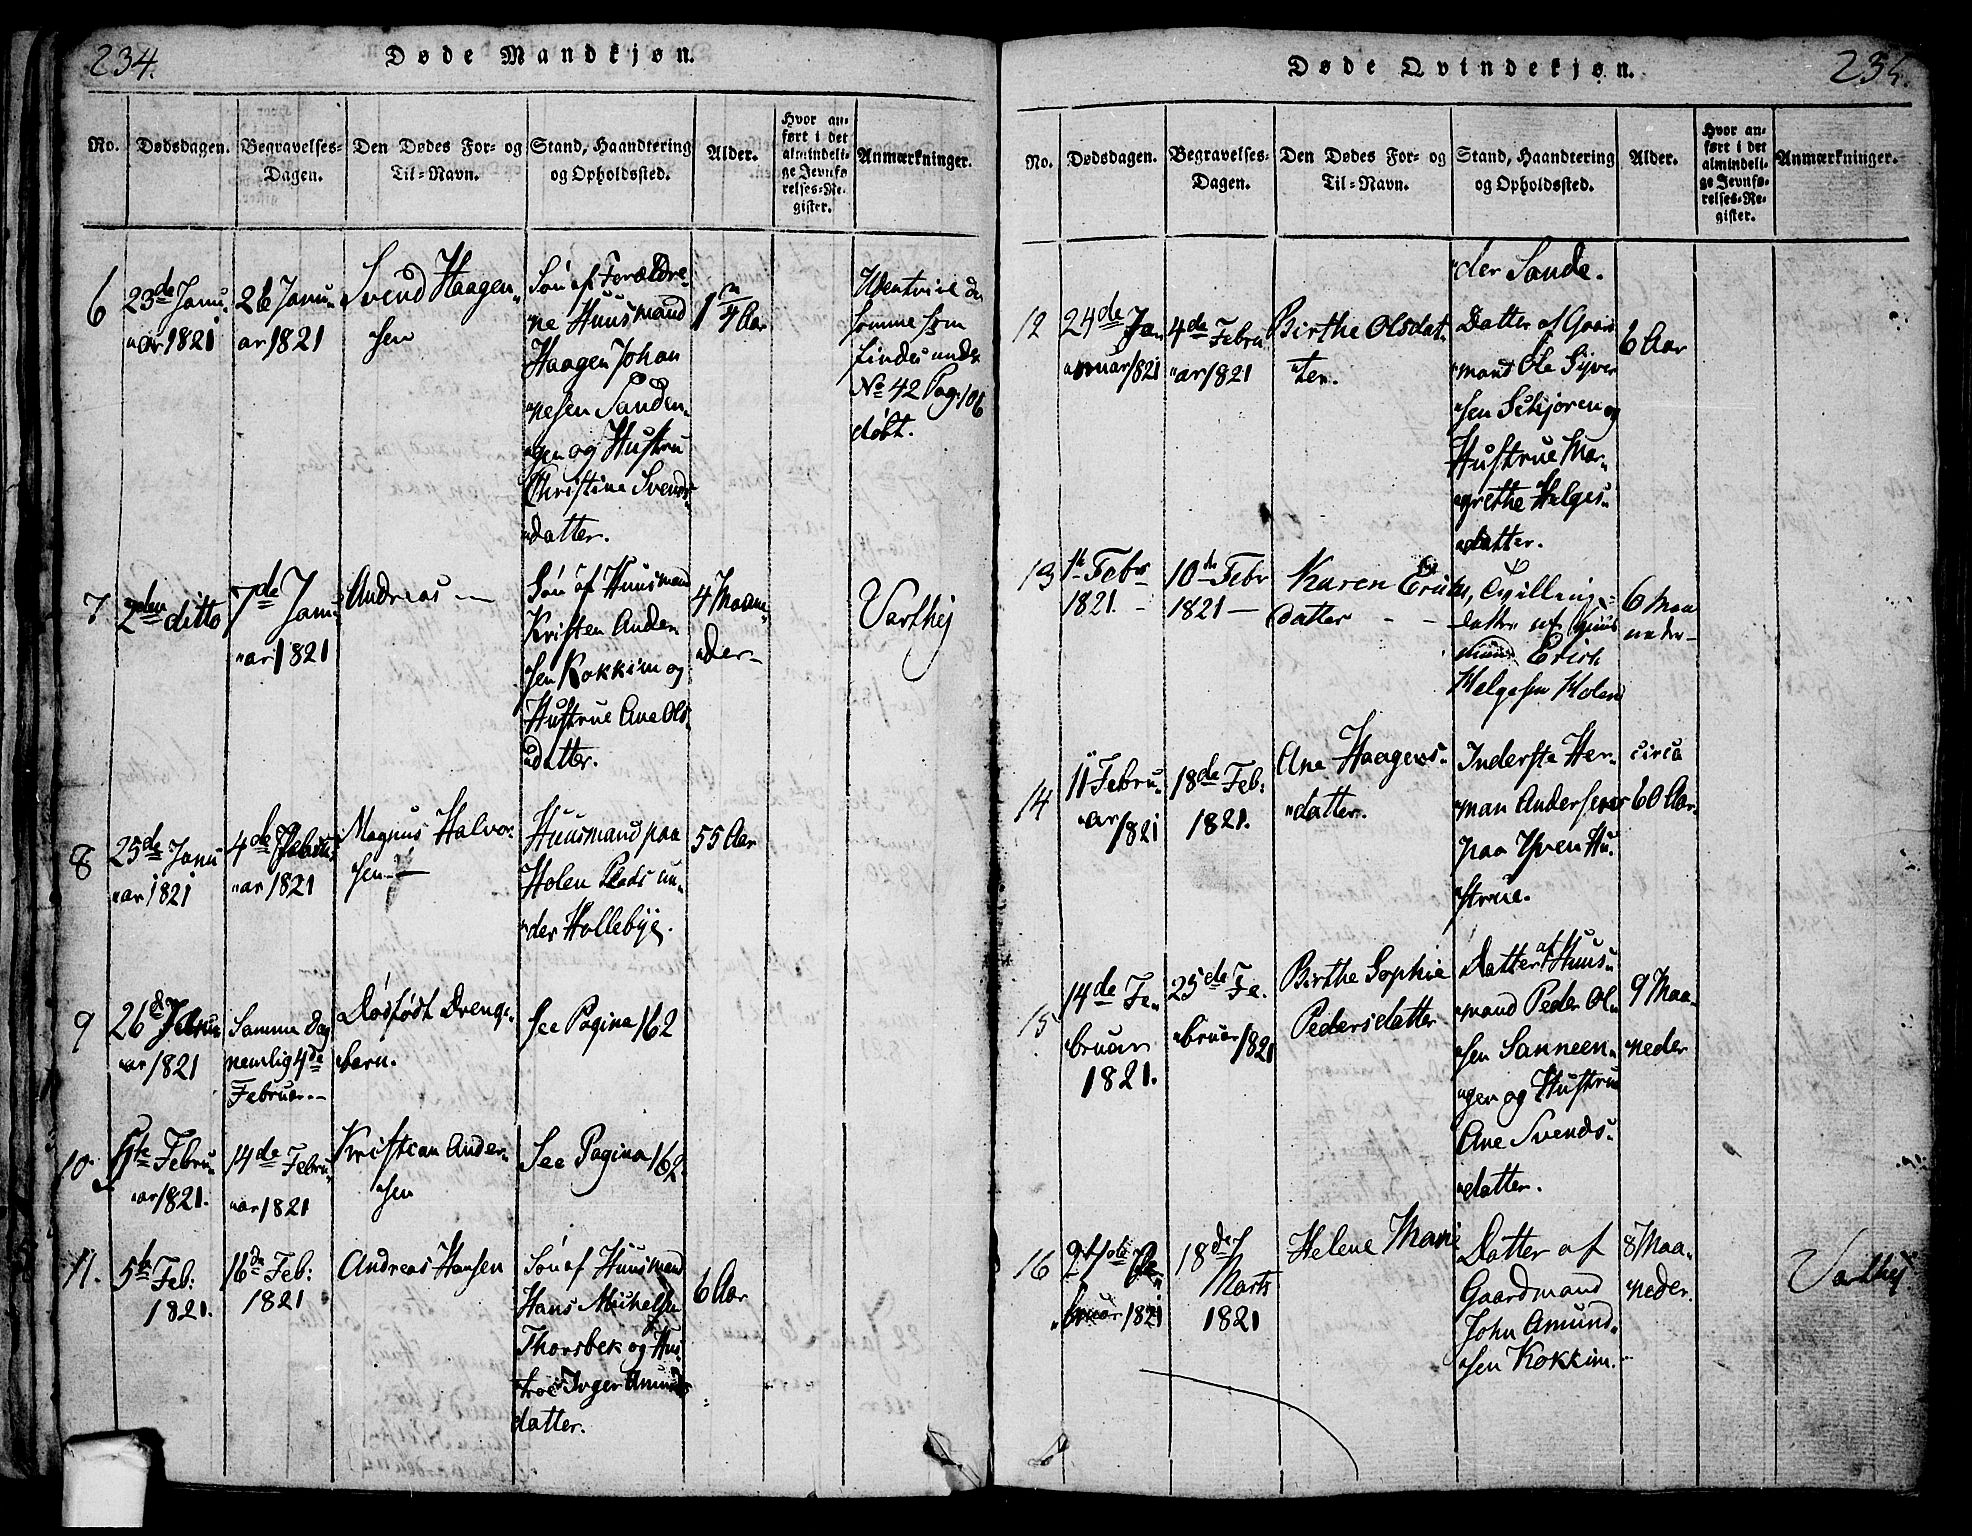 234.
Døde Mandkjøn.
No.
Dødsdagen.
Begravelses-
Dagen.
Den Dødes For- og
Til-Navn.
Stand, Haandtering
og Opholdssted.
Alder.
Hvor an-
ført i det
almindeli-
ge Jevnfø-
relses-Re-
gister.
Anmærkninger.
6
23de Janu„
„ar 1821
26 Janu„
ar 1821
Svend Haagen„
„sen
Søn af Foræld­re­
ne Huusmand
Haagen Johan
„nesen Sanden„
„gen og Hustru
Christine Svends„
„datter.
1 1/4 Aar
somme som
findes under
No 42 Pag. 106
døbt.
7
2den ditto
7de Janu„
„ar 1821
Andreas —
Søn af Huusmand
Kristen Ander„
sen Kokkim og
Hustrue Ane Ols„
„datter.
4 Maane„
„der—
Varthej
8
25de Janu
„ar 1821
4de Febru„
„ar 1821
Magnus Halvor„
sen —
Huusmand paa
Holen Plads un„
„der Hollebye.
55 Aar
9
26de Janu„
„ar 1821
Samme Dag
nemlig 4de
Februar.—
Dødfødt Drenge„
barn.
See Pagina 162
10.
5te Febru„
„ar 1821.
14de Febru„
„ar 1821
Kristian Ander„
„sen
See Pagina 162
11.
5te Feb:
1821.
16de Feb:
1821
Andreas Hansen
Søn af Huusmand
Hans Michelsen
Thorsbek og Hus„
„troe Inger Amunds
datter.
6 Aar
235.
Døde Qvindekjøn.
No.
Dødsdagen.
Begravelses-
Dagen.
Den Dødes For- og
Til-Navn.
Stand, Haandtering
og Opholdssted.
Alder.
Hvor an-
ført i det
almindeli-
ge Jevnfø-
relses-Re-
gister.
Anmærkninger.
„der Sande.
12
24de Ja„
„nuar 1821
4de Febru
„ar 1821
Birthe Olsdat„
„ter.
Datter af Gaard
„mand Ole Syver
„sen Schjøren og
Hustrue Mar„
„grethe Helges„
„datter.
6 Aar
13
1te Febr
1821. -
10de Febr
1821 —
Karen Erichs
datter - -
Tvilling„
datter af Huus
mand Erich
Helgesen Holen
6 Maa
neder—
14
11 Febru„
„ar 1821
18de Feb:
1821.
Ane Haagens„
„datter.
Inderste Her„
man Andersens
paa Hven Hu„
strue.
circa
60 Aar.
15
14de Fe„
bruar
1821.
25de Fe„
„bruar 1821
Birthe Sophie
Pedersdatter
Datter af Huus„
„mand Peder Ol„
„sen Sanneen„
„gen og Hustrue
Ane Svends„
„datter.
9 Maa„
„neder
16
24de Fe„
„bruar 1821
18de
Marts
1821
Helene Marie
Datter af
Gaardmand
John Amund„
„sen Kokkim.
8 Maa„
neder.
Varthej